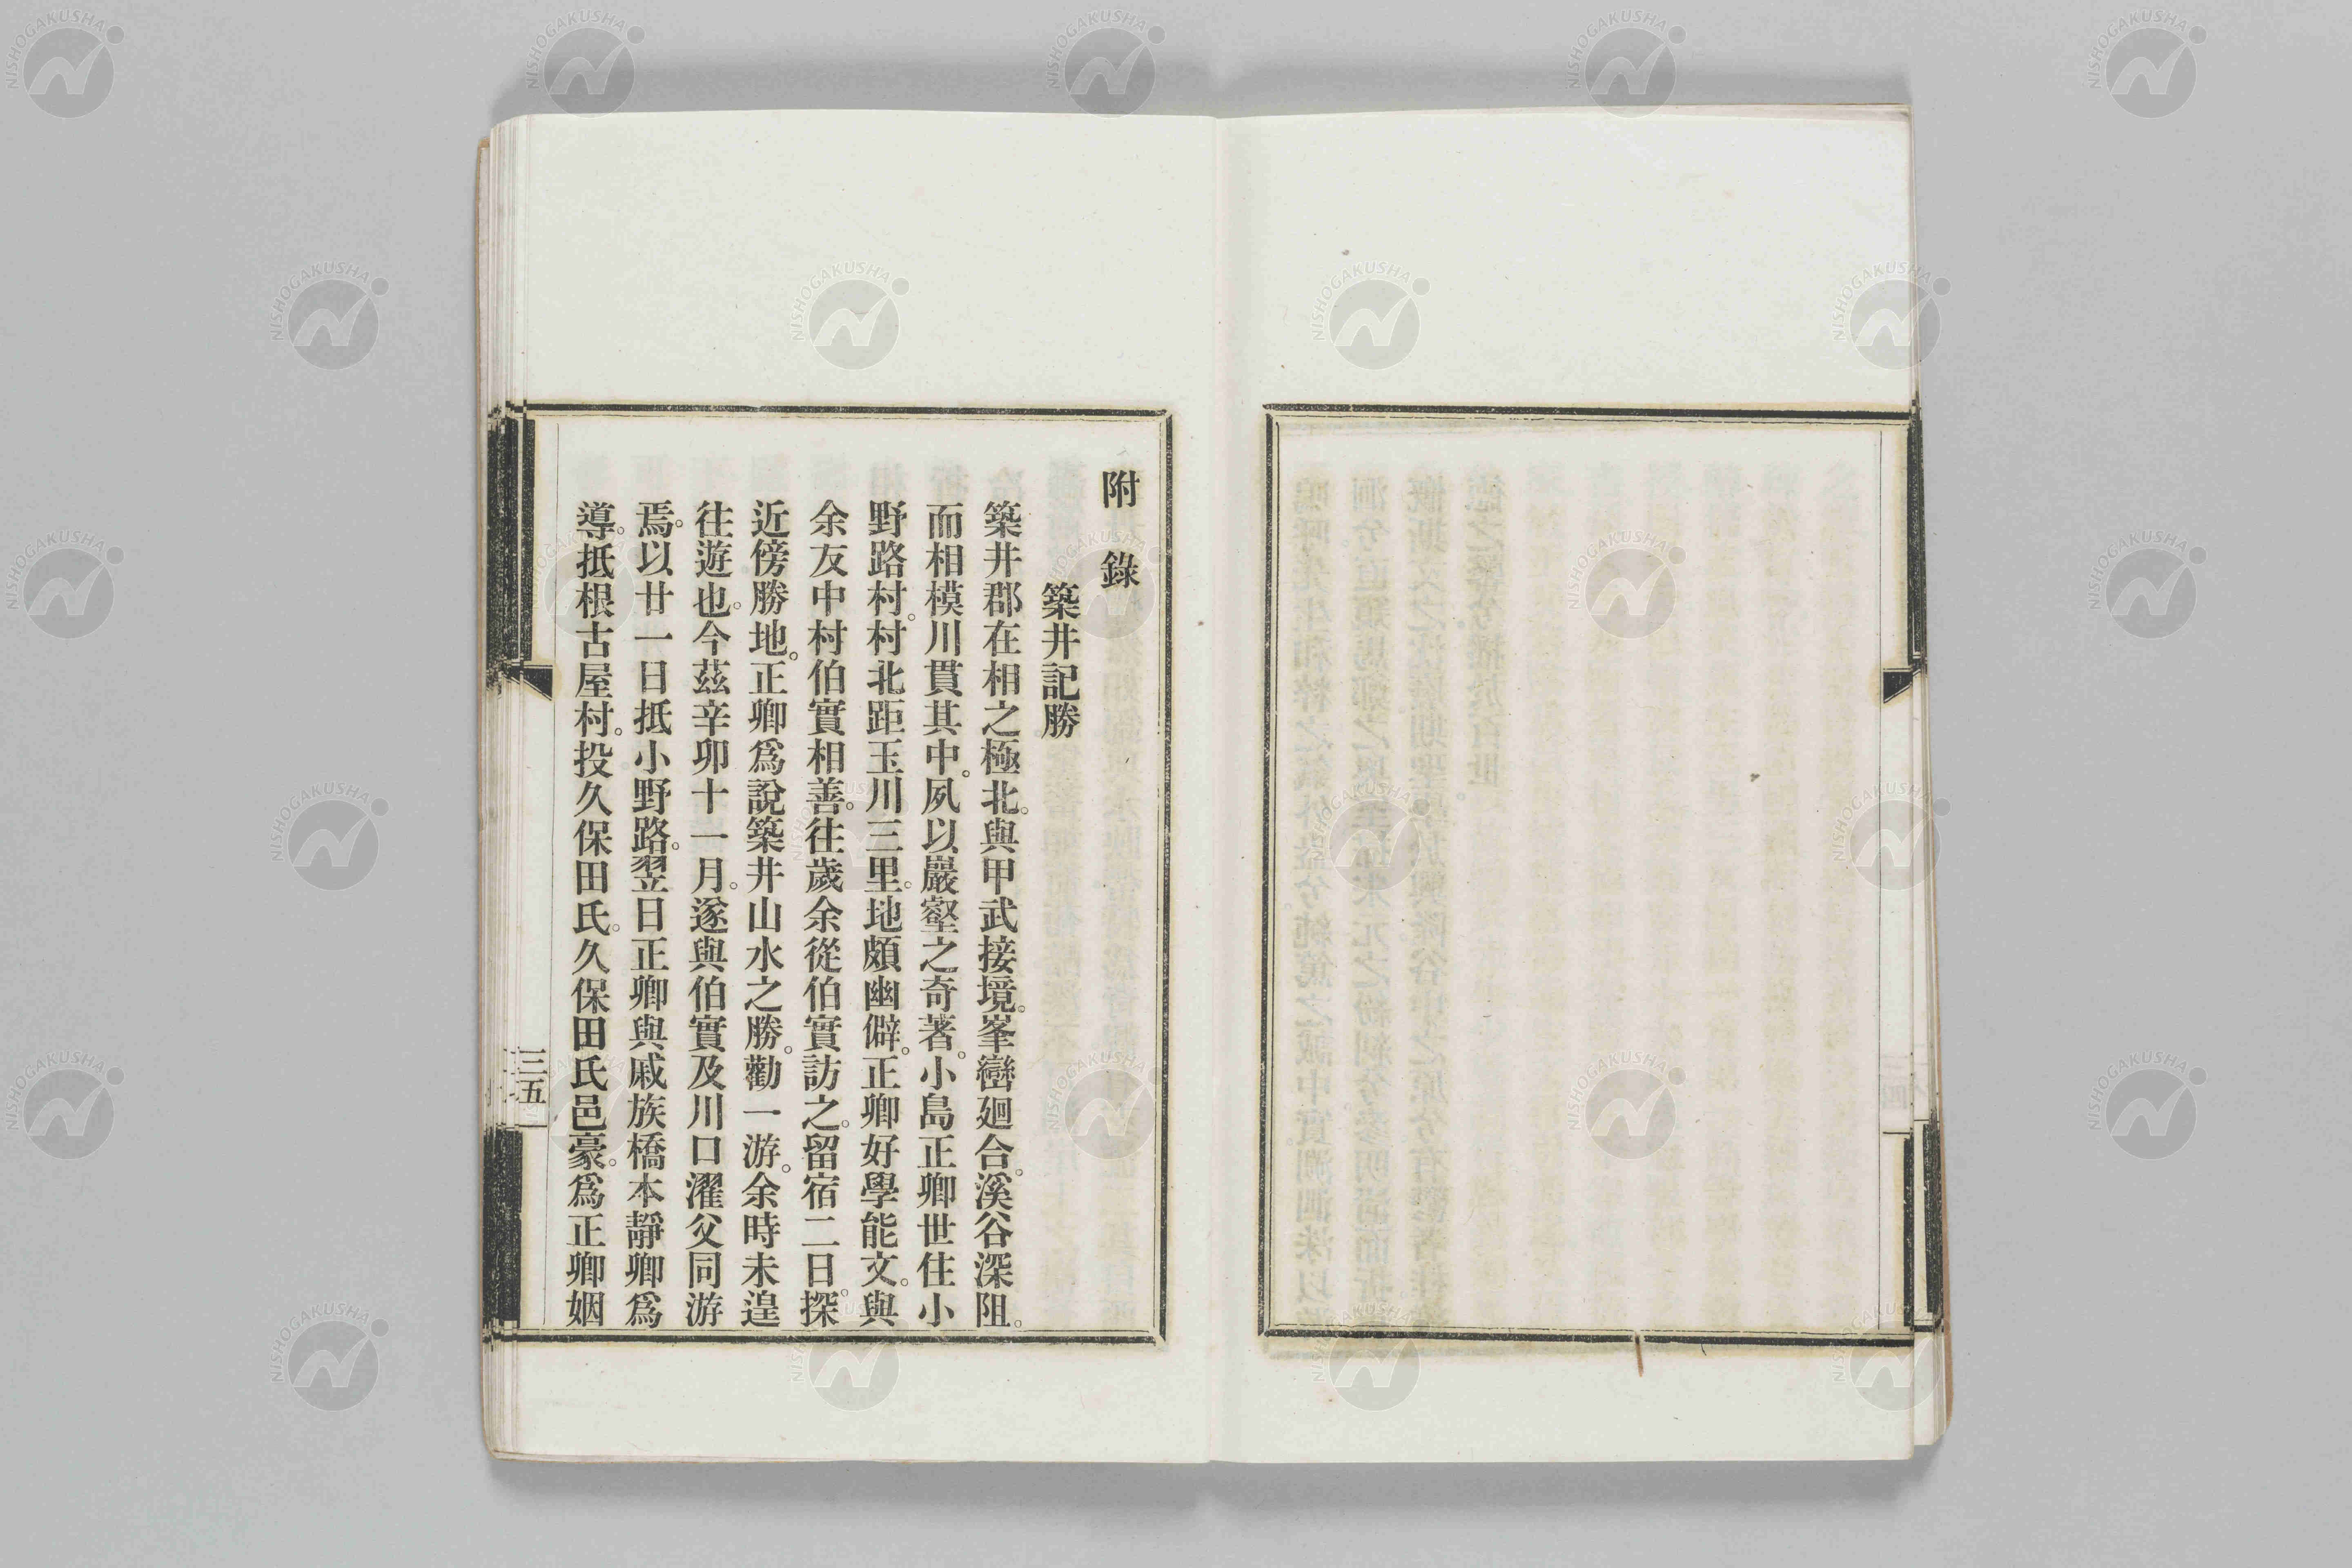 附錄
築井記勝
築井郡在相之極北。與甲武接境。峯巒廻合。溪谷深阻。
而相模川貫其中。夙以巖壑之奇著。小島正卿世住小
野路村。村北距玉川三里。地頗幽僻。正卿好學能文。與
余友中村伯實相善。往歲余從伯實訪之。留宿二日。探
近傍勝地。正卿爲說築井山水之勝。勸一游。余時未遑
往遊也。今茲辛卯十一月。遂與伯實及川口濯父同游
焉。以廿一日抵小野路。翌日正卿與戚族橋本靜卿爲
導。抵根古屋村。投久保田氏。久保田氏邑豪。爲正卿姻
三五
NISHOGAKUSHA